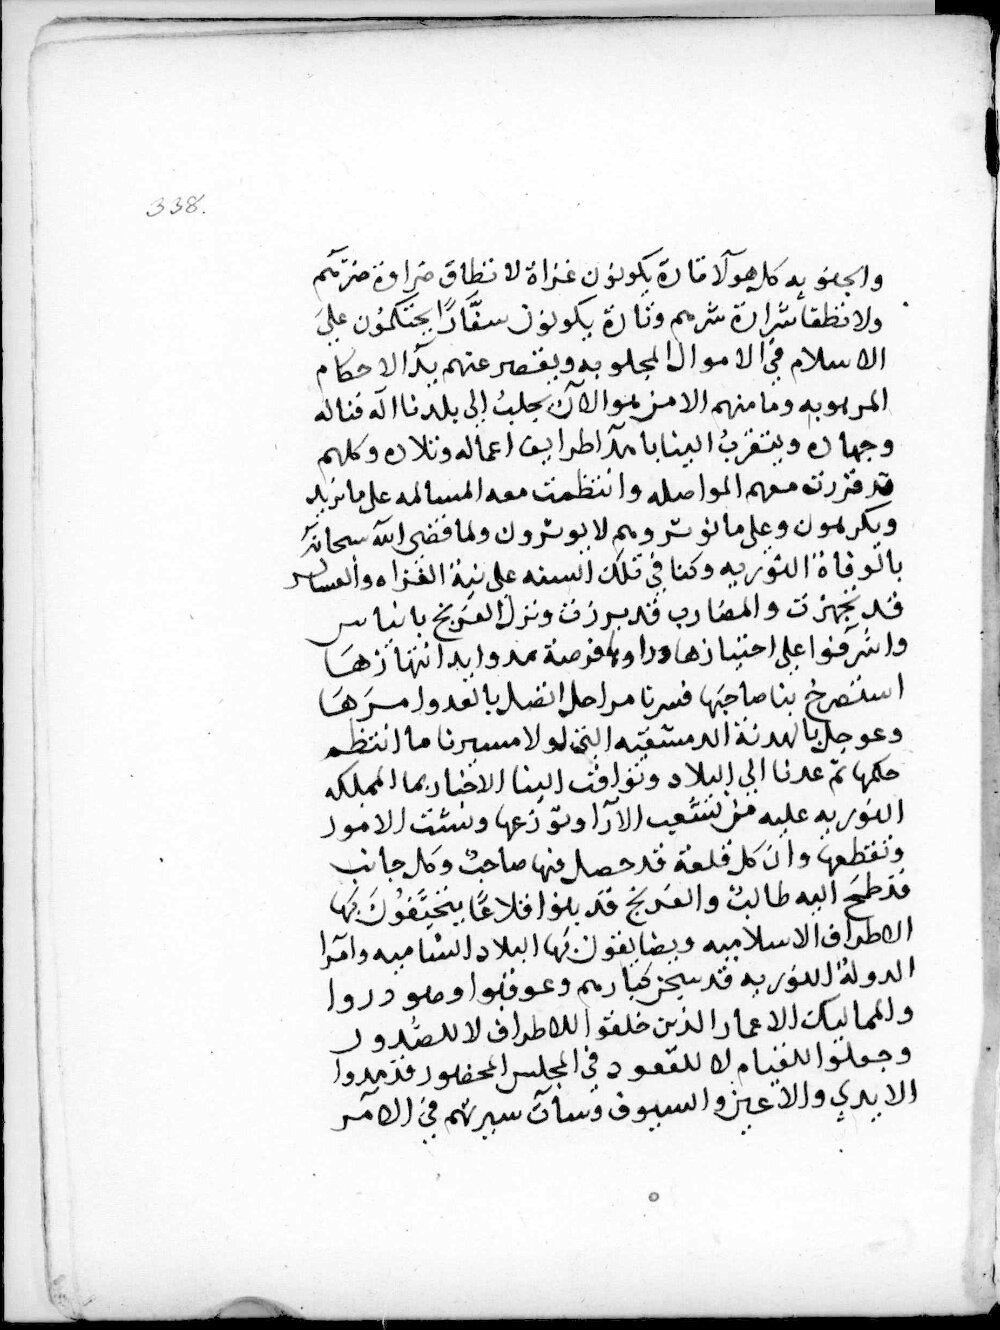 338.
والجنويه كل هولآ تارة يكونون غزاة لا تطاق ضراوة ضرهم
ولا تطفا شرارة شرهم وتارة يكونون سفَّارًا يحتكمون على
الاسلام في الاموال المجلوبه ويقتصر عنهم يد الاحكام
المرهوبه وما منهم الا من هو الآن يجلبُ إلى بلدنا آلة قتاله
وجهاده ويتقربُ الينا باهدآ طرايف اعماله وتلاده وكلهم
قد قررت معهم المواصله وانتظمت معه المسالمه على ما نريد
ويكرهون وعلى ما نوثر وهم لا يوثرون ولما قضى الله سبحانه
بالوفاة النوريه وكنا في تلك السنه على نية الغزاه والعساكر
قد تجهزت والمضارب قد برزت ونزل الفرنج بانياس
واشرفوا على احتيازها وراوها فرصة مدوا يد انتهازهَا
استصرخ بنا صاحبها فسرنا مراحل اتصل بالعدو امرَهَا
وعوجل بالهدنة الدمشقيه التي لولا مسيرنا ما انتظم
حكمها ثم عدنا الى البلاد وتوافت الينا الاخبار بما المملكه
النوريه عليه من تشعب الآرآ وتوزعها وتشتت الامور
وتقطعها وان كل قلعة قد حصل فيها صاحبٌ وكل جانب
قد طمح اليه طالبٌ والفرنج قد بنوا قلاعًا يتحيَّفُونَ بها
الاطراف الاسلاميه ويضايقون بها البلاد الشاميه وامرا
الدولة النوريه قد سجن كبارهم وعوقبوا وصودروا
والمماليك الاغمار الذين خلقوا للاطراف لا للصُّدور
وجعلوا للقيام لا للقعود في المجلس المحضور قد مدوا
الايدي والاعين والسيوف وسآت سيرتهم في الامر